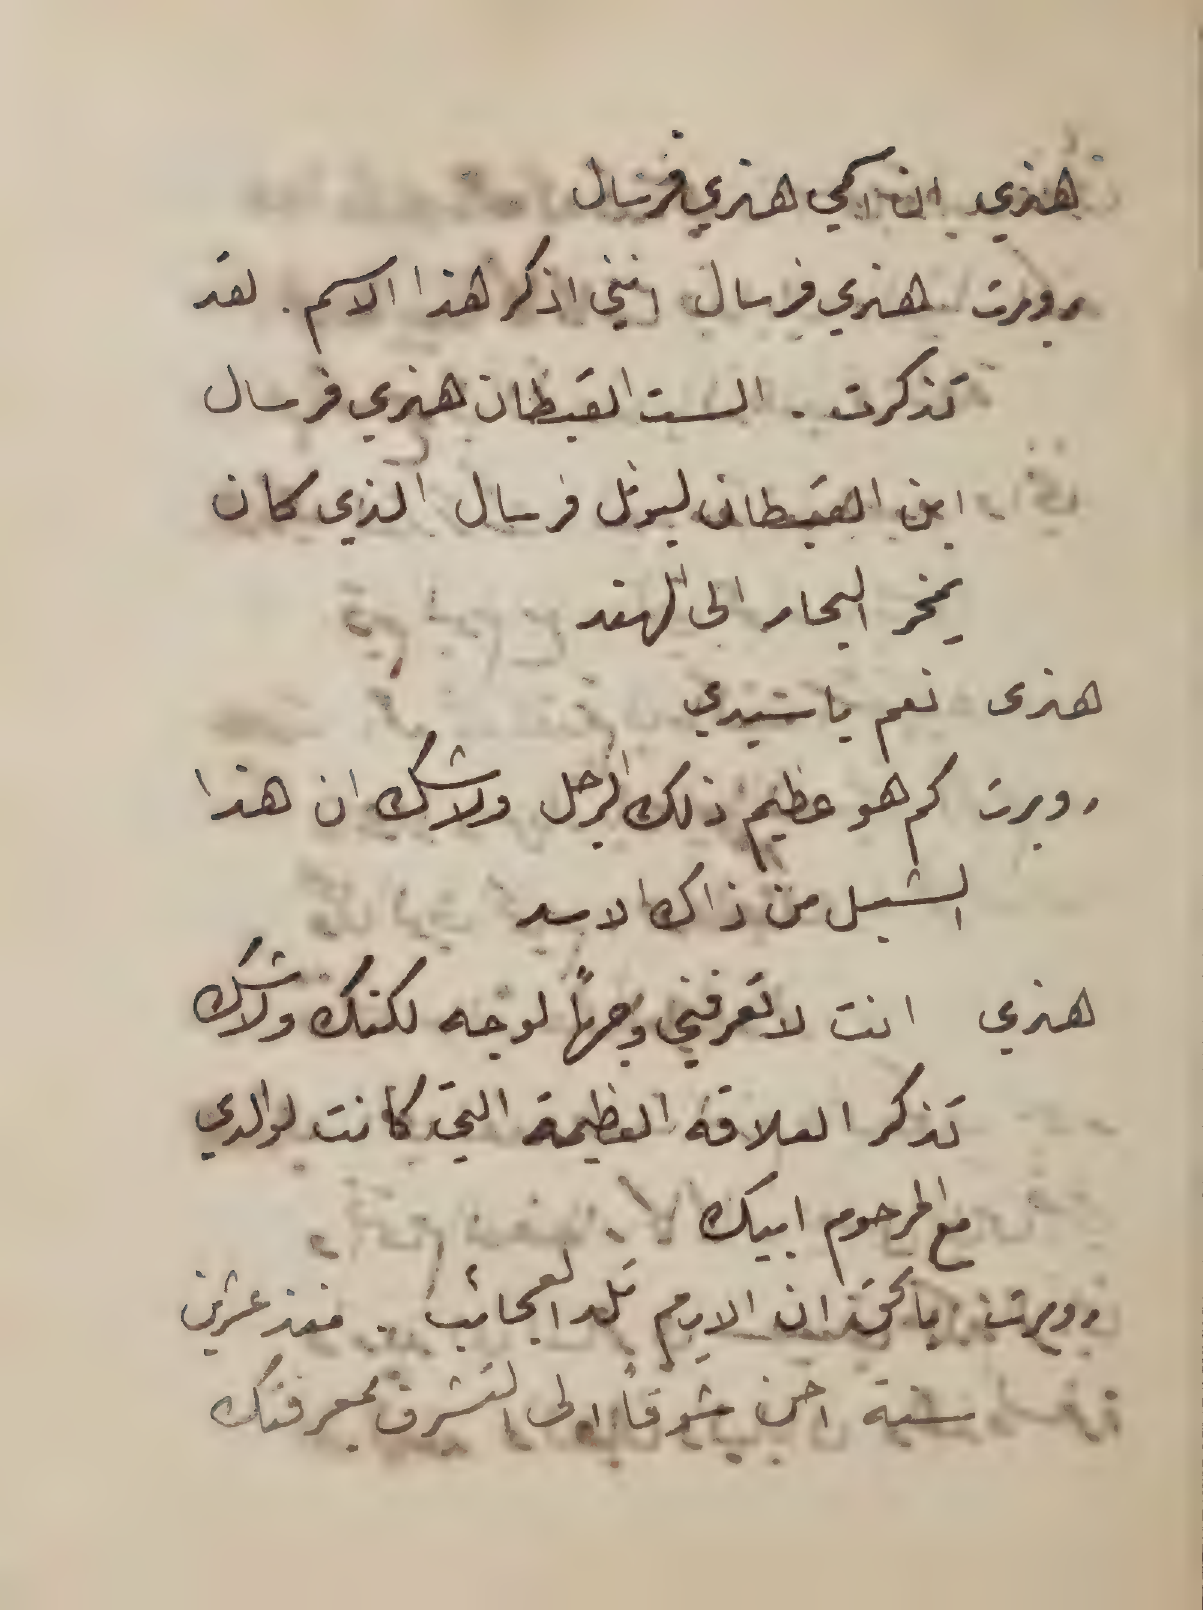 هنري ان اسمي هنري فرسال
روبرت هنري فرسال انني اذكر هذا الاسم. لقد
تذكرت . الست القبطان هنري فرسال
ابن القبطان ليونل فرسال الذي كان
يمخر البحار الى الهند
هنرى نعم يا سيدي
روبرت كم هو عظيم ذلك الرجل ولا شك ان هذا
الشبل من ذاك الاسد
هنري انت لا تعرفني وجهاً لوجه لكنك ولا شك
تذكر العلاقة العظيمة التي كانت لوالدي
مع المرحوم ابيك
روبرت بالحق ان الايام تلد العجائب . فمنذ عشرين
سنة احن شوقاً الى التشرف بمعرفتك